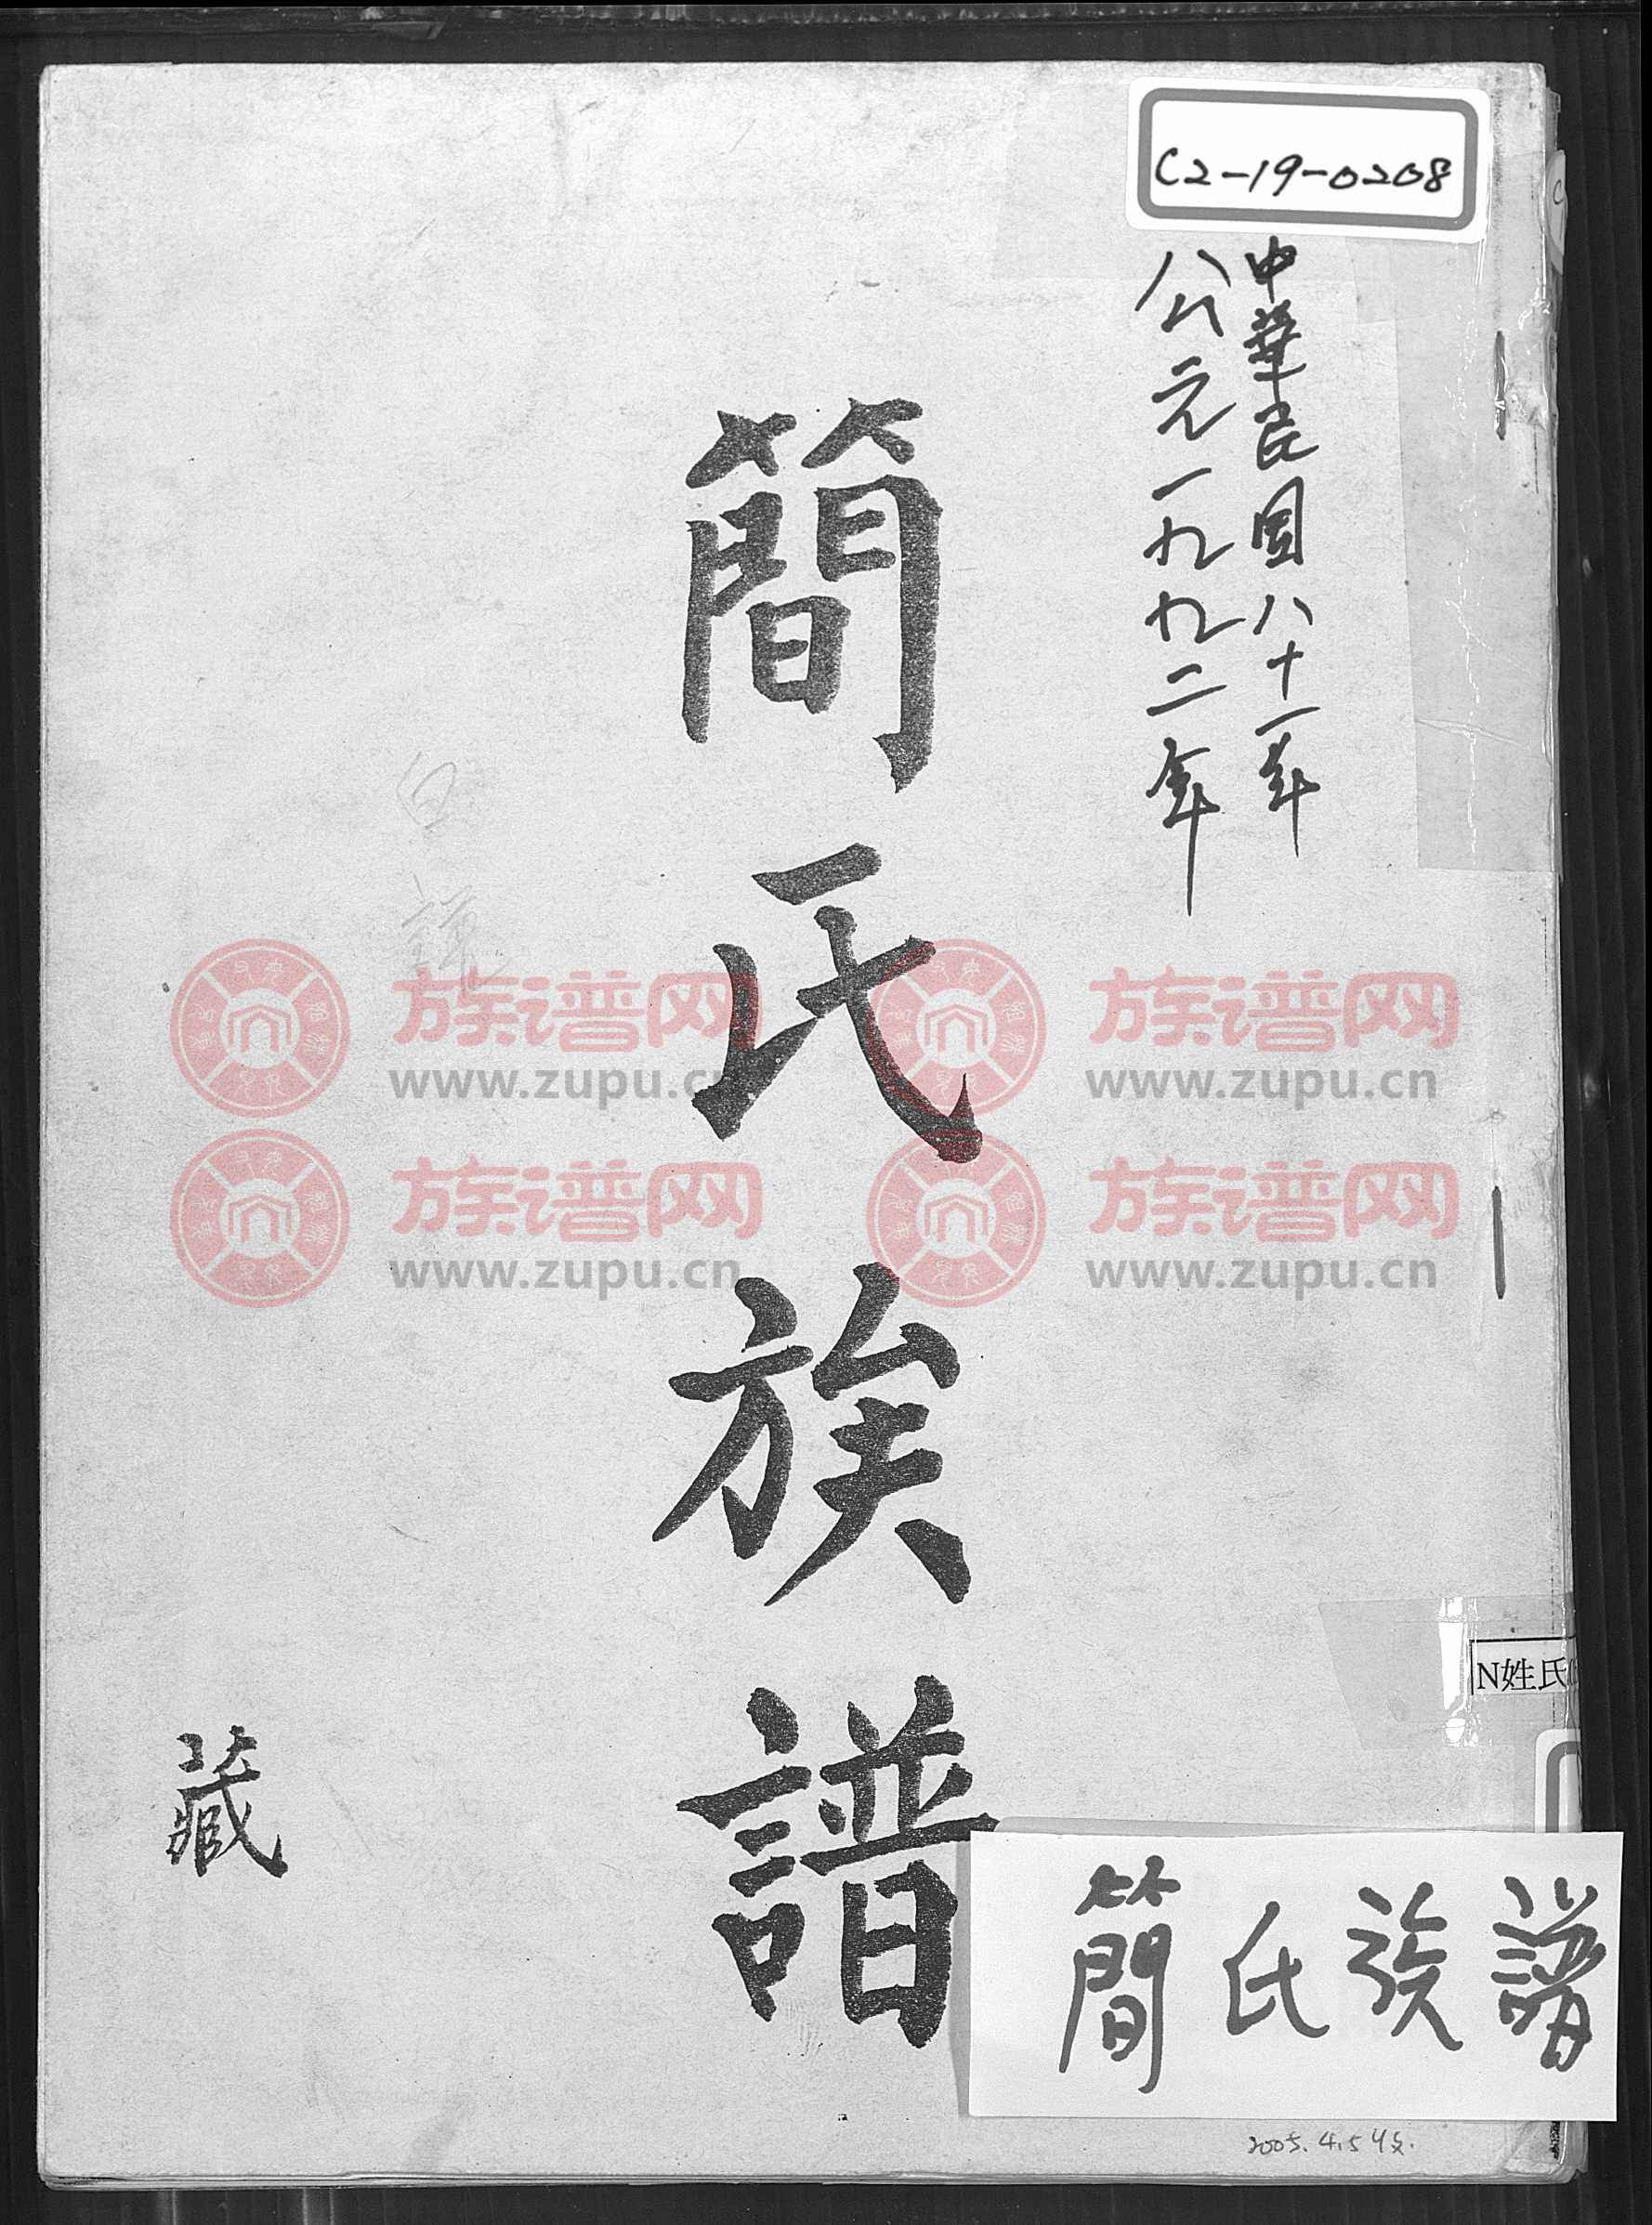 C2-19-0208
中華民国八十一年
公元一九九二年
簡氏族譜
藏
族谱网
www.zupu.cn
族谱网
www.zupu.cn
族谱网
www.zupu.cn
族谱网
www.zupu.cn
N姓氏
簡氏族譜
2005.4.5